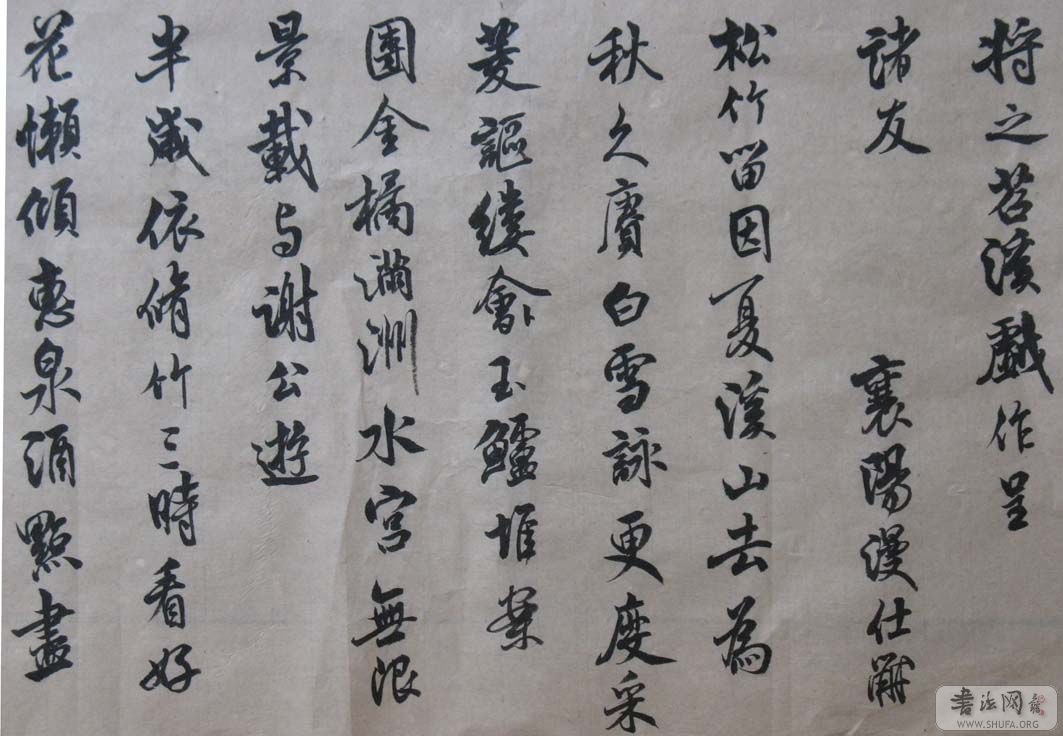 将之苕溪戯作呈
諸友 襄陽漫仕黻
松竹留因夏溪山去為
秋久賡白雪詠更度采
菱謳縷會玉鱸堆案
團金橘滿洲水宮無限
景載与謝公遊
半歲依脩竹三時看好
花懶傾惠泉酒點盡
书法网
WWW.SHUFA.ORG